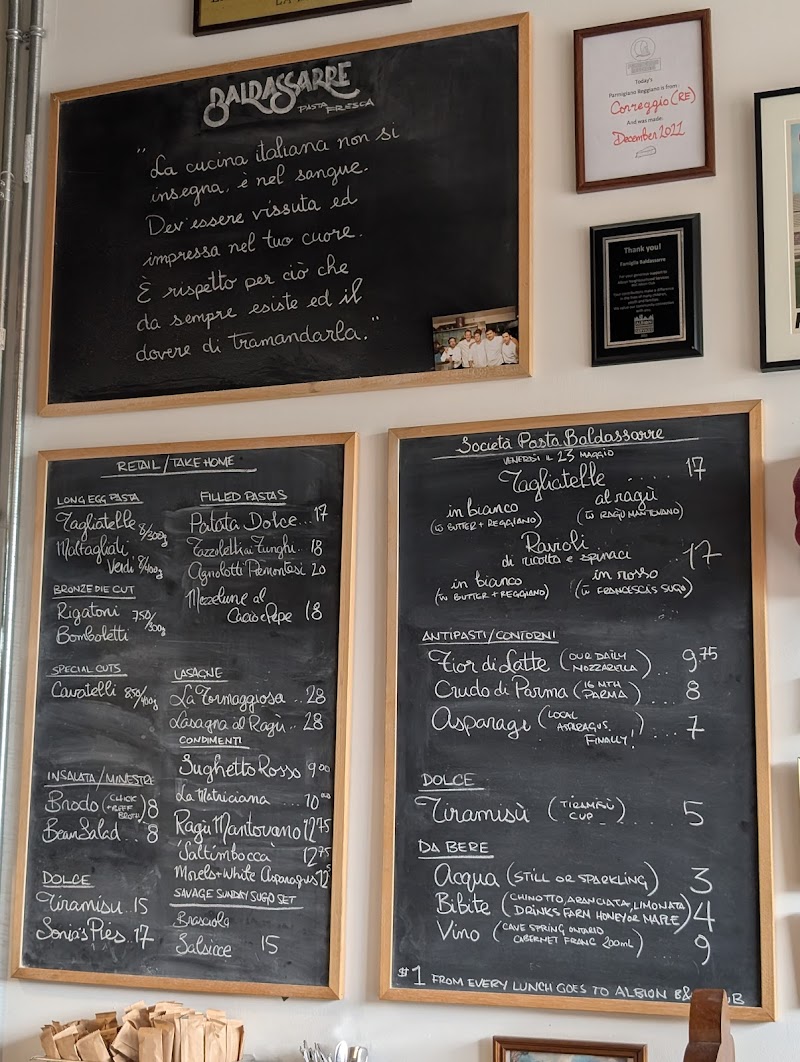 BALDASSARRE
PASTA FRESCA
"La cucina italiana non si
insegna, è nel sangue.
Dev'essere vissuta ed
impressa nel tuo cuore.
È rispetto per ciò che
da sempre esiste ed il
dovere di tramandarla."
Today's
Parmigiano Reggiano is from:
Correggio (RE)
And was made:
December 2021
Thank you!
Famiglia Baldassarre
RETAIL/TAKE HOME
LONG EGG PASTA
Tagliatelle 8/300g
Maltagliati
Verdi 8/400g
BRONZE DIE CUT
Rigatoni 750/500g
Bomboletti
SPECIAL CUTS
Cavatelli 850/400g
INSALATA/MINESTRE
Brodo (CHICK + BEEF BROTH) 8
Bean Salad... 8
DOLCE
Tiramisu.. 15
Sonja's Pies. 17
FILLED PASTAS
Patata Dolce... 17
Fazzoletti ai Funghi.. 18
Agnolotti Piemontesi 20
Mezzelune al
Cacio e Pepe 18
LASAGNE
La Formaggiosa .. 28
Lasagna al Ragù .. 28
CONDIMENTI
Sughetto Rosso 9.00
La Matriciana ... 10.00
Ragù Mantovano 12.75
'Saltimbocca' 12.75
Morels + White Asparagus 12
SAVAGE SUNDAY SUGO SET
Brasciole
Salsicce 15
Società Pasta Baldassarre
VENERDÌ IL 23 MAGGIO
Tagliatelle ..... 17
in bianco al ragù
(W BUTTER + REGGIANO) (W RAGÙ MANTOVANO)
Ravioli
di ricotta e spinaci ... 17
in bianco in rosso
(W BUTTER + REGGIANO) (W FRANCESCA'S SUGO)
ANTIPASTI/CONTORNI
Fior di Latte (OUR DAILY MOZZARELLA).. 9.75
Crudo di Parma (16 MTH PARMA) .. 8
Asparagi (LOCAL ASPARAGUS, FINALLY!) .. 7
DOLCE
Tiramisù (TIRAMISÙ CUP) ... 5
DA BERE
Acqua (STILL OR SPARKLING) 3
Bibite (CHINOTTO, ARANCIATA, LIMONATA DRINKS FARM HONEY OR MAPLE) 4
Vino (CAVE SPRING ONTARIO CABERNET FRANC 200ml) 9
$1 FROM EVERY LUNCH GOES TO ALBION